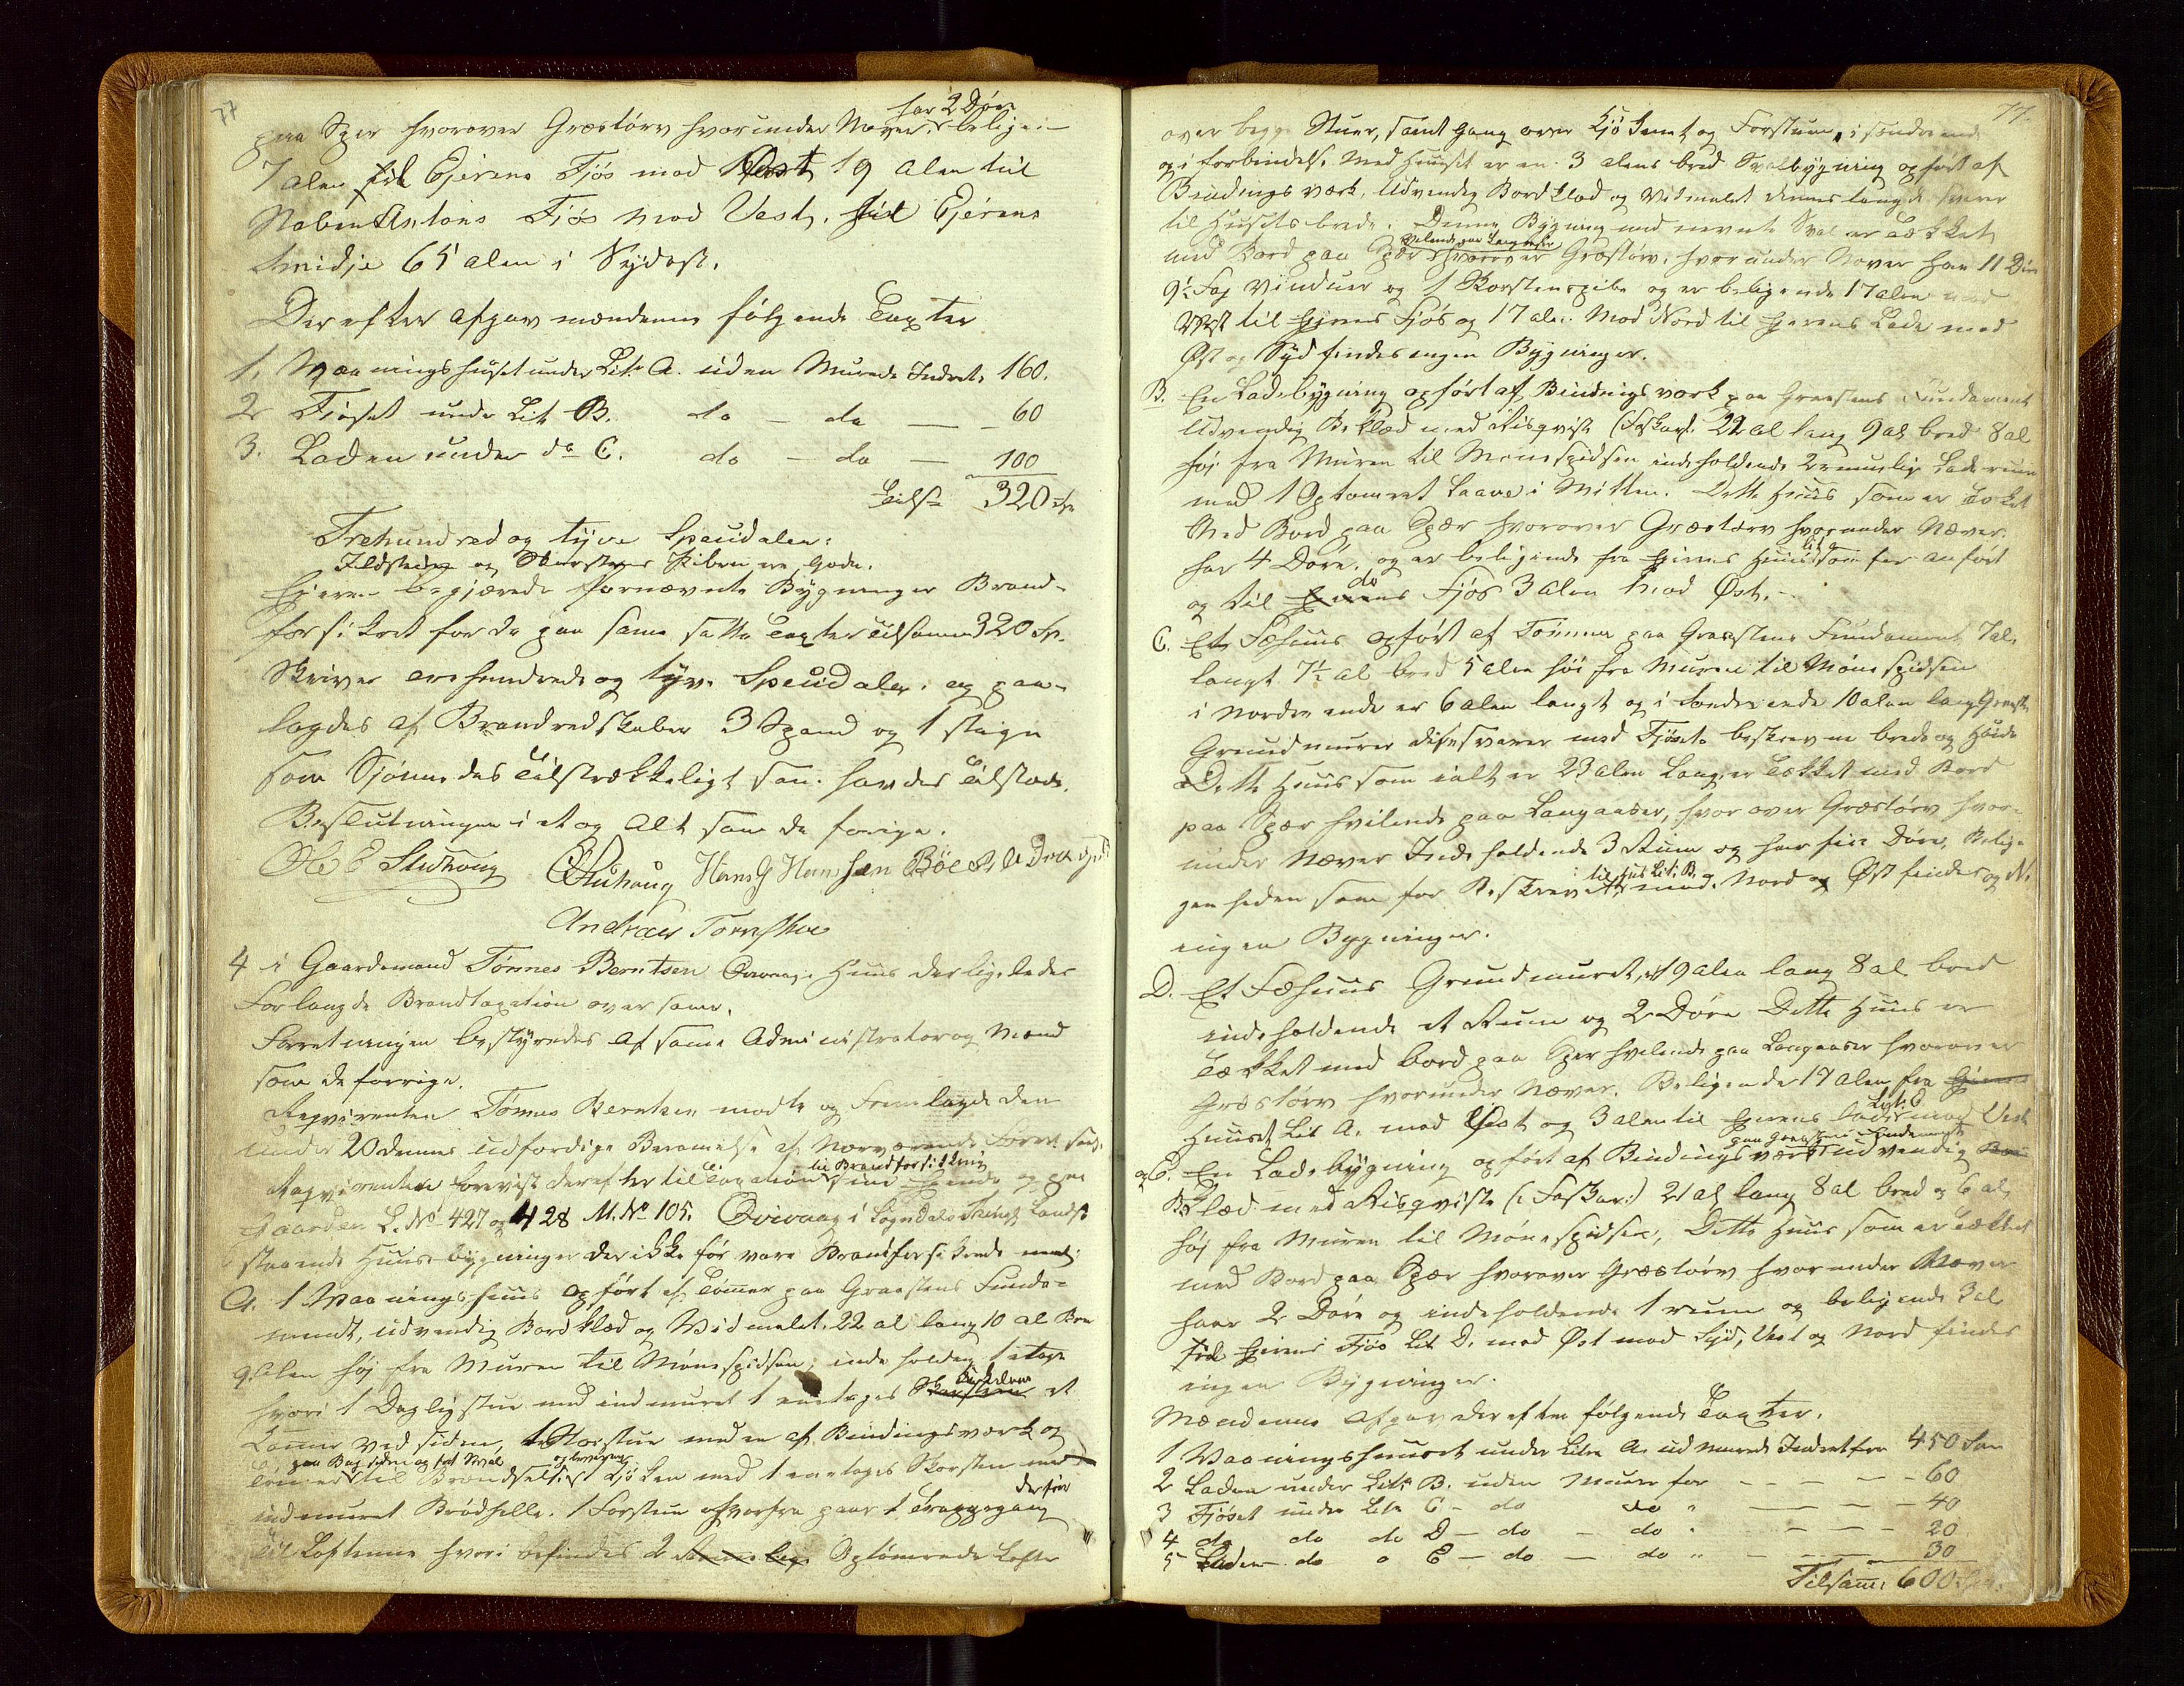 77
paa Sper hvorover Græstørv hvorunder Never, har 2 Døre beligen-
7 alen fra Ejerens Fjøs mod Vest, 19 alen til
Naboen Antons Fjøs mod Vest, til Ejerens
Smidje 65 alen i Sydost.
Derefter afgav mændene følgende Taxter
1. Waaningshuset under Litr A. uden Murede Indret. 160.
2 Fjøset under Lit B. do - do - 60
3. Laden under do C. do - do - 100
Tils. 320 Spd
Trehundred og tyve Speidaler.
Ildsteder og Skorstens Piben er gode.
Ejeren begjærede fornævnte Bygninger Brand-
forsikret for de paa samme satte Taxter tilsamen 320 Sp.
Skriver trehundrede og tyve Speidaler. og paa-
lagdes af Brandredskaber 3 Spand og 1 stige
som Skjønnedes tilstrækkeligt som havdes tilstede.
Beslutningen i et og Alt som de forrige.
Ole E Stuhoug Hans G Hanssen Bøe
Andreas Tornshoe
4 i Gaardemand Tønnes Berntsen Qvivaag. Huus der ligeledes
Forlangde Brandtaxation over samme.
Forretningen bestyredes af samme Administrator og Mænd
som de forrige.
Reqvirenten Tønnes Berntsen mødte og fremlagde den
under 20 dennes udfærdige Berammelse af Nærværende Forretning
Reqvirenten beviste derefter til Taxation til Brandforsikring sine Eiende og paa
Gaarden L. No 427 og 428 M. No 105. Qvivaag i Sogndals Landst
staaende Huusbygninger der ikke før vare Brandforsikrede nemlig:
A. 1 Waaningshuus opført af Tømmer paa Graastens Funda=
ment, udvendig Bordklæd og Hvidmalet. 22 al lang 10 al Bred
9 Alen høj fra Muren til Mønespidsen, indeholder 1 etage
hvori 1 Dagligstue med indmuret 1 enetages Kakkelovn et
Kammer ved siden, 1 Storstue med en af Bindingsværk og
Tømmer paa Bagsiden og til Brændsel Kjøkken med 1 enetages Skorsten med
indmuret Brødhelle. 1 Forstue hvorfra gaar 1 Trappegang
til Lofterne hvori befindes 2 Optømrede Lofter
77.
over begge Stuer, samt gang over Kjøkenet og Forstuen, i søndre ende
og i forbindelse Med Huuset er en 3 alens bred Svalbygning opført af
Bindingsværk, Udvendig Bordklæd og Hvidmalet dennes længde svarer
til Husets brede. Denne Bygning med nevnte Sval er tækket
med Bord paa Sper hvilende paa Langaaser hvorover Græstørv, hvorunder Never har 11 Døre
9½ Fag Vinduer og 1 Skorstenspibe og er beligende 17 alen mod
Vest til Ejerens Fjøs og 17 alen Mod Nord til Ejerens Lade mod
Øst og Syd findes ingen Bygninger.
B. En Ladebygning opført af Bindingsværk paa Graastens Fundament
Udvendig Beklæd med Risqvister (Foskar) 22 al lang 9 al bred 8 al
høj fra Muren til Mønespidsen indeholdende 2 rumelige Laderum
med 1 Optømret Laave i Mitten. Dette Huus som er tækket
Med Bord paa Sper hvorover Græstørv hvorunder Never.
har 4 Døre. og er beligende fra Ejerens Huus Lit A som før anført
og til do Fjøs 3 alen mod Øst.-
C. Et Fæhuus opført af Tømmer paa Graastens Fundament 7 al.
langt 7½ al bred 5 alen høi fra Muren til Mønespidsen
i Nordre ende er 6 alen langt og i søndre ende 10 alen lang Graasten
Grundmurer disse svarer med Fjøsets beskrevne brede og Høide
Dette Huus som ialt er 23 alen Lang er tækket med Bord
paa Sper hvilende paa Langaaser, hvorover Græstørv hvor-
under Never Indeholdende 3 Rum og har fire Døre, Belig-
genheden som før Beskrevet til huus Lit. B. mod Nord og Øst findes
ingen Bygninger.
D. Et Fæhuus Grundmuret, 19 alen lang 8 al bred
indeholdende et Rum og 2 Døre Dette Huus er
tækket med bord paa Sper hvilende paa Langaaser hvorover
Græstørv hvorunder Never. Beligende 17 alen fra
Huuset Lit A. mod Øst og 3 alen til Ejerens Lade Lit. E mod Vest
E. En Ladebygning opført af Bindingsværk paa Graastens Fundament udvendig
Beklæd med Risqviste (: Foskar:) 21 al lang 8 al bred og 6 al.
høj fra Muren til Mønespidsen, Dette Huus som er tækket
med Bord paa Sper hvorover Græstørv hvorunder Never
haar 2 Døre og indeholdende 1 rum og beligende 3 al
fra Ejerens Fjøs Lit D. mod Øst mod Syd, Vest og Nord findes
ingen Bygninger.
Mændene afgav derefter følgende Taxter.
1 Waaningshuuset under Litra A. ud Murede Indretn for 450 Spd
2 Laden under Litr B. uden Muur for - - - - 60
3 Fjøset under Litr C - do do " - - - 40
4 do do do D - do - do " - - - 20
5 Laden do o E - do - do " - - - 30
Tilsam: 600 Spd.